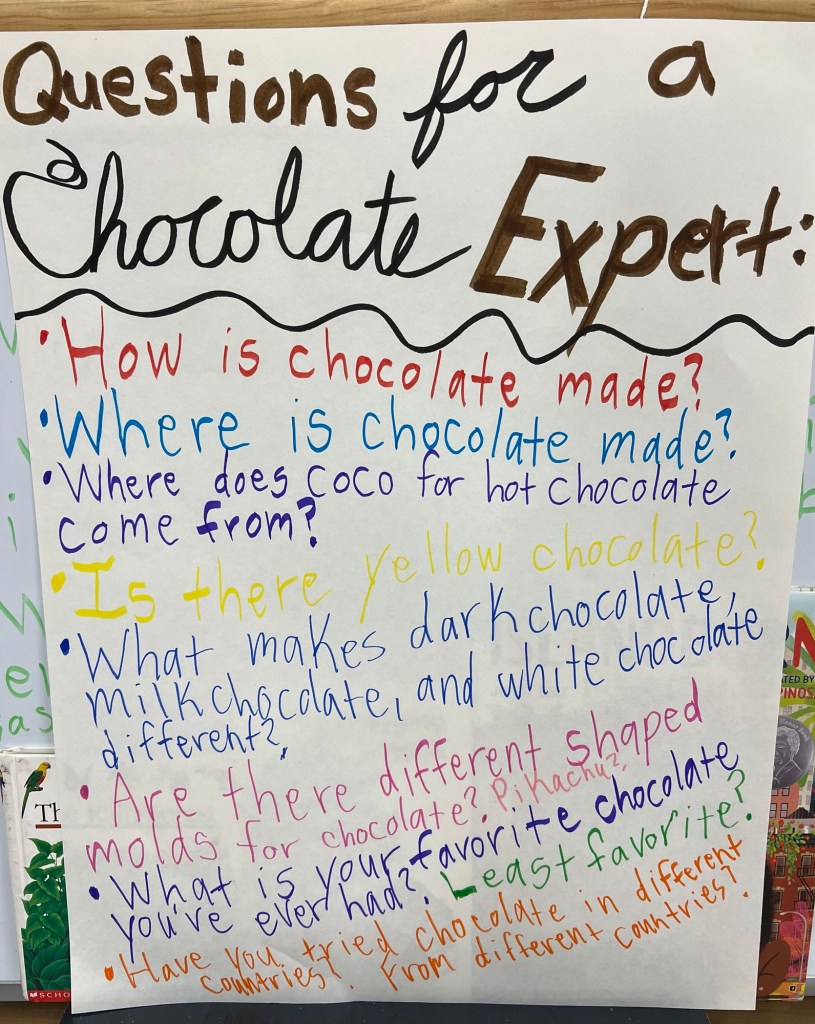 Questions for a
Chocolate Expert:
• How is chocolate made?
• Where is chocolate made?
• Where does coco for hot chocolate
come from?
• Is there yellow chocolate?
• What makes dark chocolate,
milk chocolate, and white chocolate
different?
• Are there different shaped
molds for chocolate? Pikachu?
• What is your favorite chocolate
you've ever had? Least favorite?
• Have you tried chocolate in different
countries? From different countries?
Th
SCHO
TED BY
PINOS